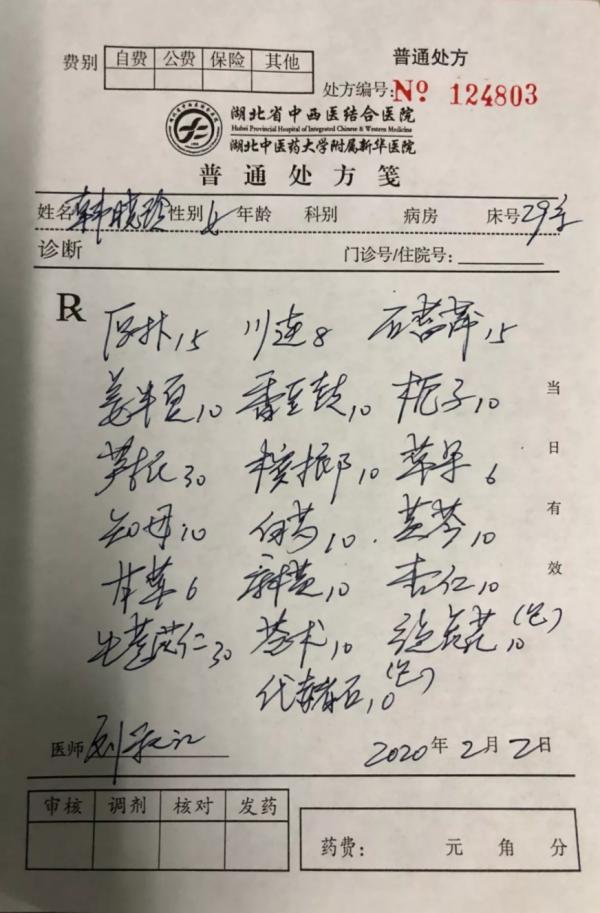 费别 自费 公费 保险 其他
普通处方
处方编号:No 124803
湖北省中西医结合医院
Hubei Provincial Hospital of Integrated Chinese & Western Medicine
湖北中医药大学附属新华医院
普通处方笺
姓名 韩晓玲 性别 女 年龄 科别 病房 床号 29床
诊断 门诊号/住院号:
R
厚朴15 川连8 石菖蒲15
姜半夏10 香豆豉10 栀子10
芦根30 槟榔10 草果6
知母10 白芍10 黄芩10
甘草6 麻黄10 杏仁10
生薏苡仁30 苍术10 旋复花10(包)
代赭石10(包)
当日有效
医师 2020年2月2日
审核 调剂 核对 发药
药费: 元 角 分